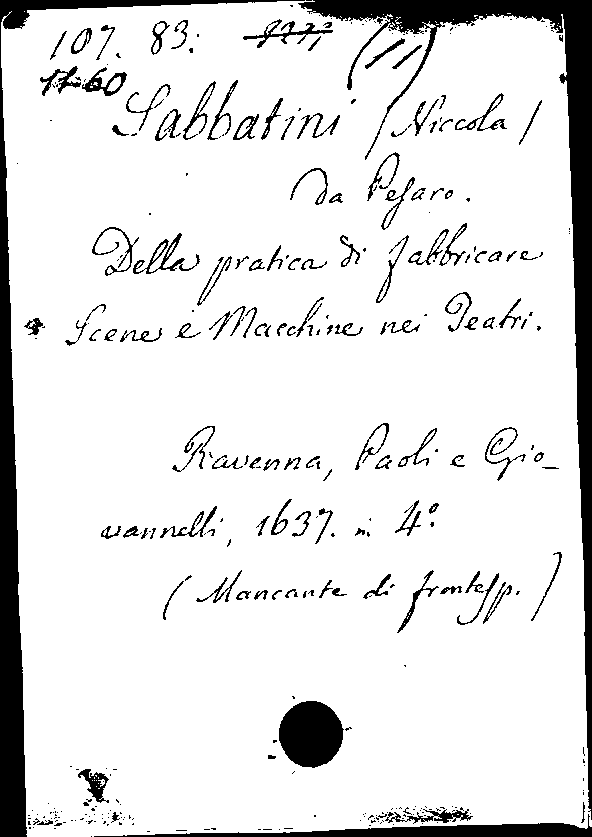 107. 83. (11)
11-60
Sabbatini (Niccola)
da Pesaro.
Della pratica di fabbricare
Scene e Macchine nei Teatri.
Ravenna, Paoli e Gio-
vannelli, 1637. in 4.º
(Mancante di frontesp.)